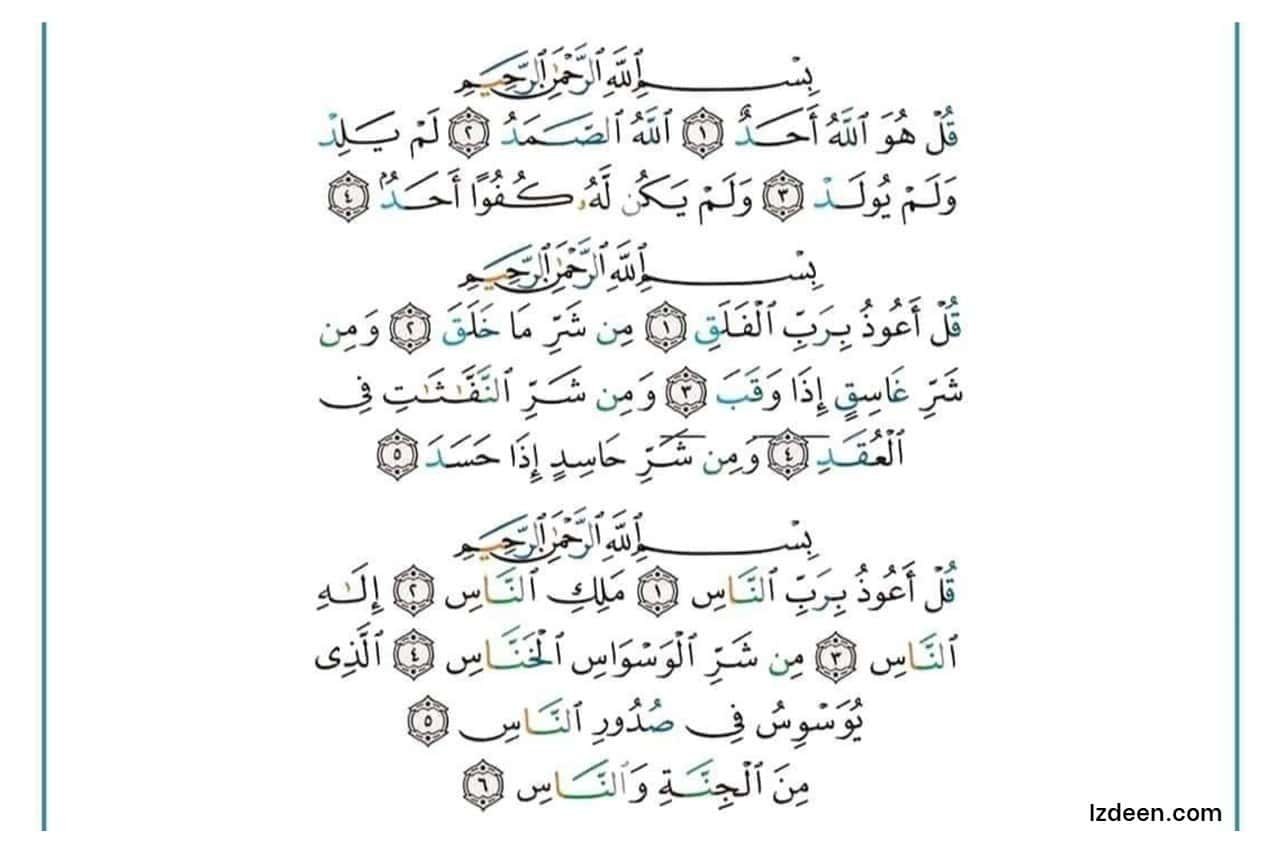 بِسْمِ ٱللَّهِ ٱلرَّحْمَٰنِ ٱلرَّحِيمِ
قُلْ هُوَ ٱللَّهُ أَحَدٌ ١ ٱللَّهُ ٱلصَّمَدُ ٢ لَمْ يَلِدْ
وَلَمْ يُولَدْ ٣ وَلَمْ يَكُن لَّهُۥ كُفُوًا أَحَدٌۢ ٤
بِسْمِ ٱللَّهِ ٱلرَّحْمَٰنِ ٱلرَّحِيمِ
قُلْ أَعُوذُ بِرَبِّ ٱلْفَلَقِ ١ مِن شَرِّ مَا خَلَقَ ٢ وَمِن
شَرِّ غَاسِقٍ إِذَا وَقَبَ ٣ وَمِن شَرِّ ٱلنَّفَّٰثَٰتِ فِى
ٱلْعُقَدِ ٤ وَمِن شَرِّ حَاسِدٍ إِذَا حَسَدَ ٥
بِسْمِ ٱللَّهِ ٱلرَّحْمَٰنِ ٱلرَّحِيمِ
قُلْ أَعُوذُ بِرَبِّ ٱلنَّاسِ ١ مَلِكِ ٱلنَّاسِ ٢ إِلَٰهِ
ٱلنَّاسِ ٣ مِن شَرِّ ٱلْوَسْوَاسِ ٱلْخَنَّاسِ ٤ ٱلَّذِى
يُوَسْوِسُ فِى صُدُورِ ٱلنَّاسِ ٥
مِنَ ٱلْجِنَّةِ وَٱلنَّاسِ ٦
Izdeen.com